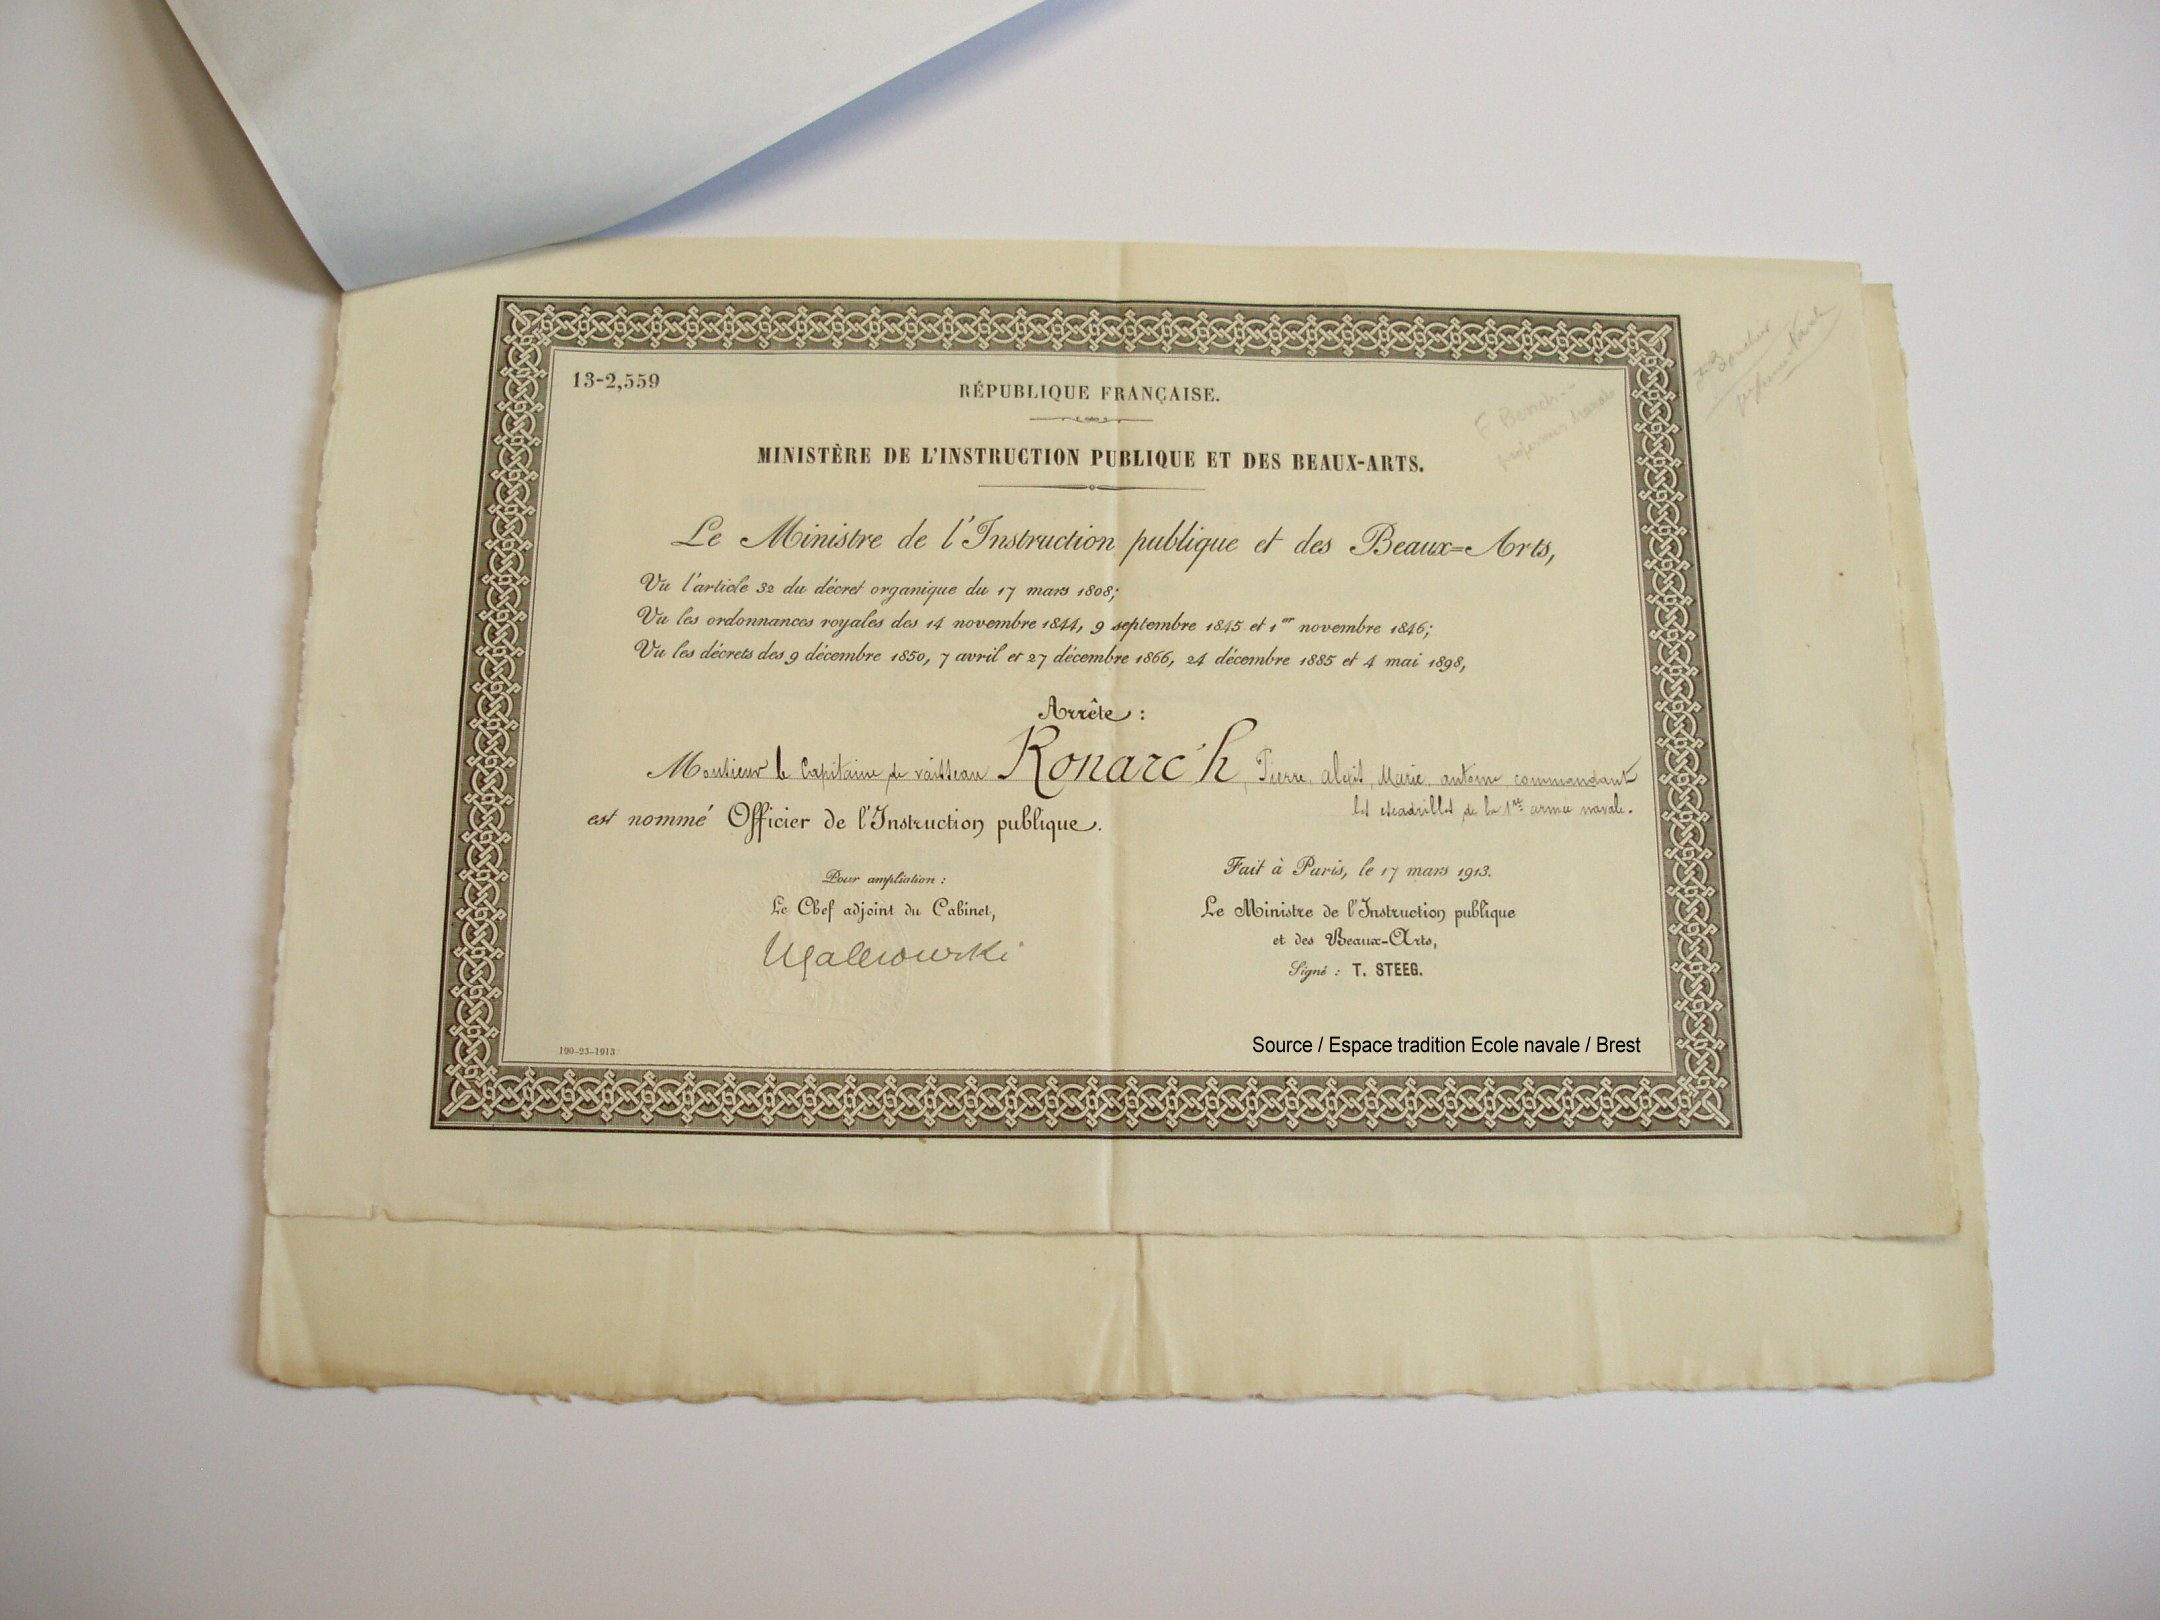 13-2,559
RÉPUBLIQUE FRANÇAISE.
MINISTÈRE DE L'INSTRUCTION PUBLIQUE ET DES BEAUX-ARTS.
Le Ministre de l'Instruction publique et des Beaux-Arts,
Vu l'article 32 du décret organique du 17 mars 1808;
Vu les ordonnances royales des 14 novembre 1844, 9 septembre 1845 et 1er novembre 1846;
Vu les décrets des 9 décembre 1850, 7 avril et 27 décembre 1866, 24 décembre 1885 et 4 mai 1898,
Arrête :
Monsieur le Capitaine de vaisseau Ronarc'h, Pierre, alexis, Marie, antoine commandant
les escadrilles de la 1re armée navale.
est nommé Officier de l'Instruction publique.
Pour ampliation :
Le Chef adjoint du Cabinet,
Fait à Paris, le 17 mars 1913.
Le Ministre de l'Instruction publique
et des Beaux-Arts,
Signé : T. STEEG.
190-23-1913
Source / Espace tradition Ecole navale / Brest